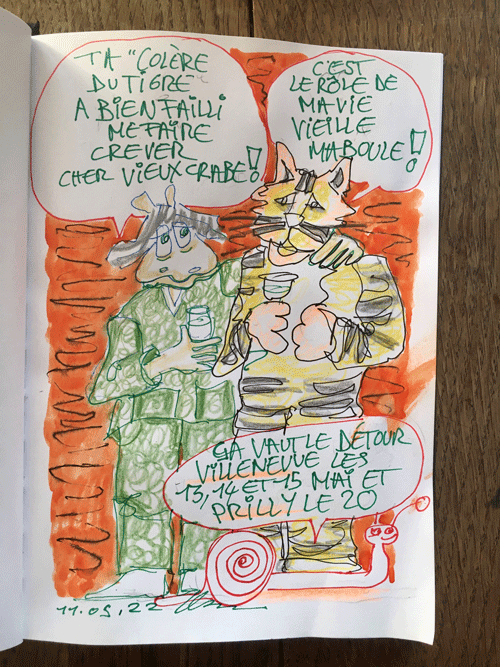 TA "COLÈRE
DU TIGRE"
A BIEN FAILLI
ME FAIRE
CREVER
CHER VIEUX CRABE!
C'EST
LE RÔLE DE
MA VIE
VIEILLE
MABOULE!
ÇA VAUT LE DETOUR
VILLENEUVE LES
13, 14 ET 15 MAI ET
PRILLY LE 20
11.05.22